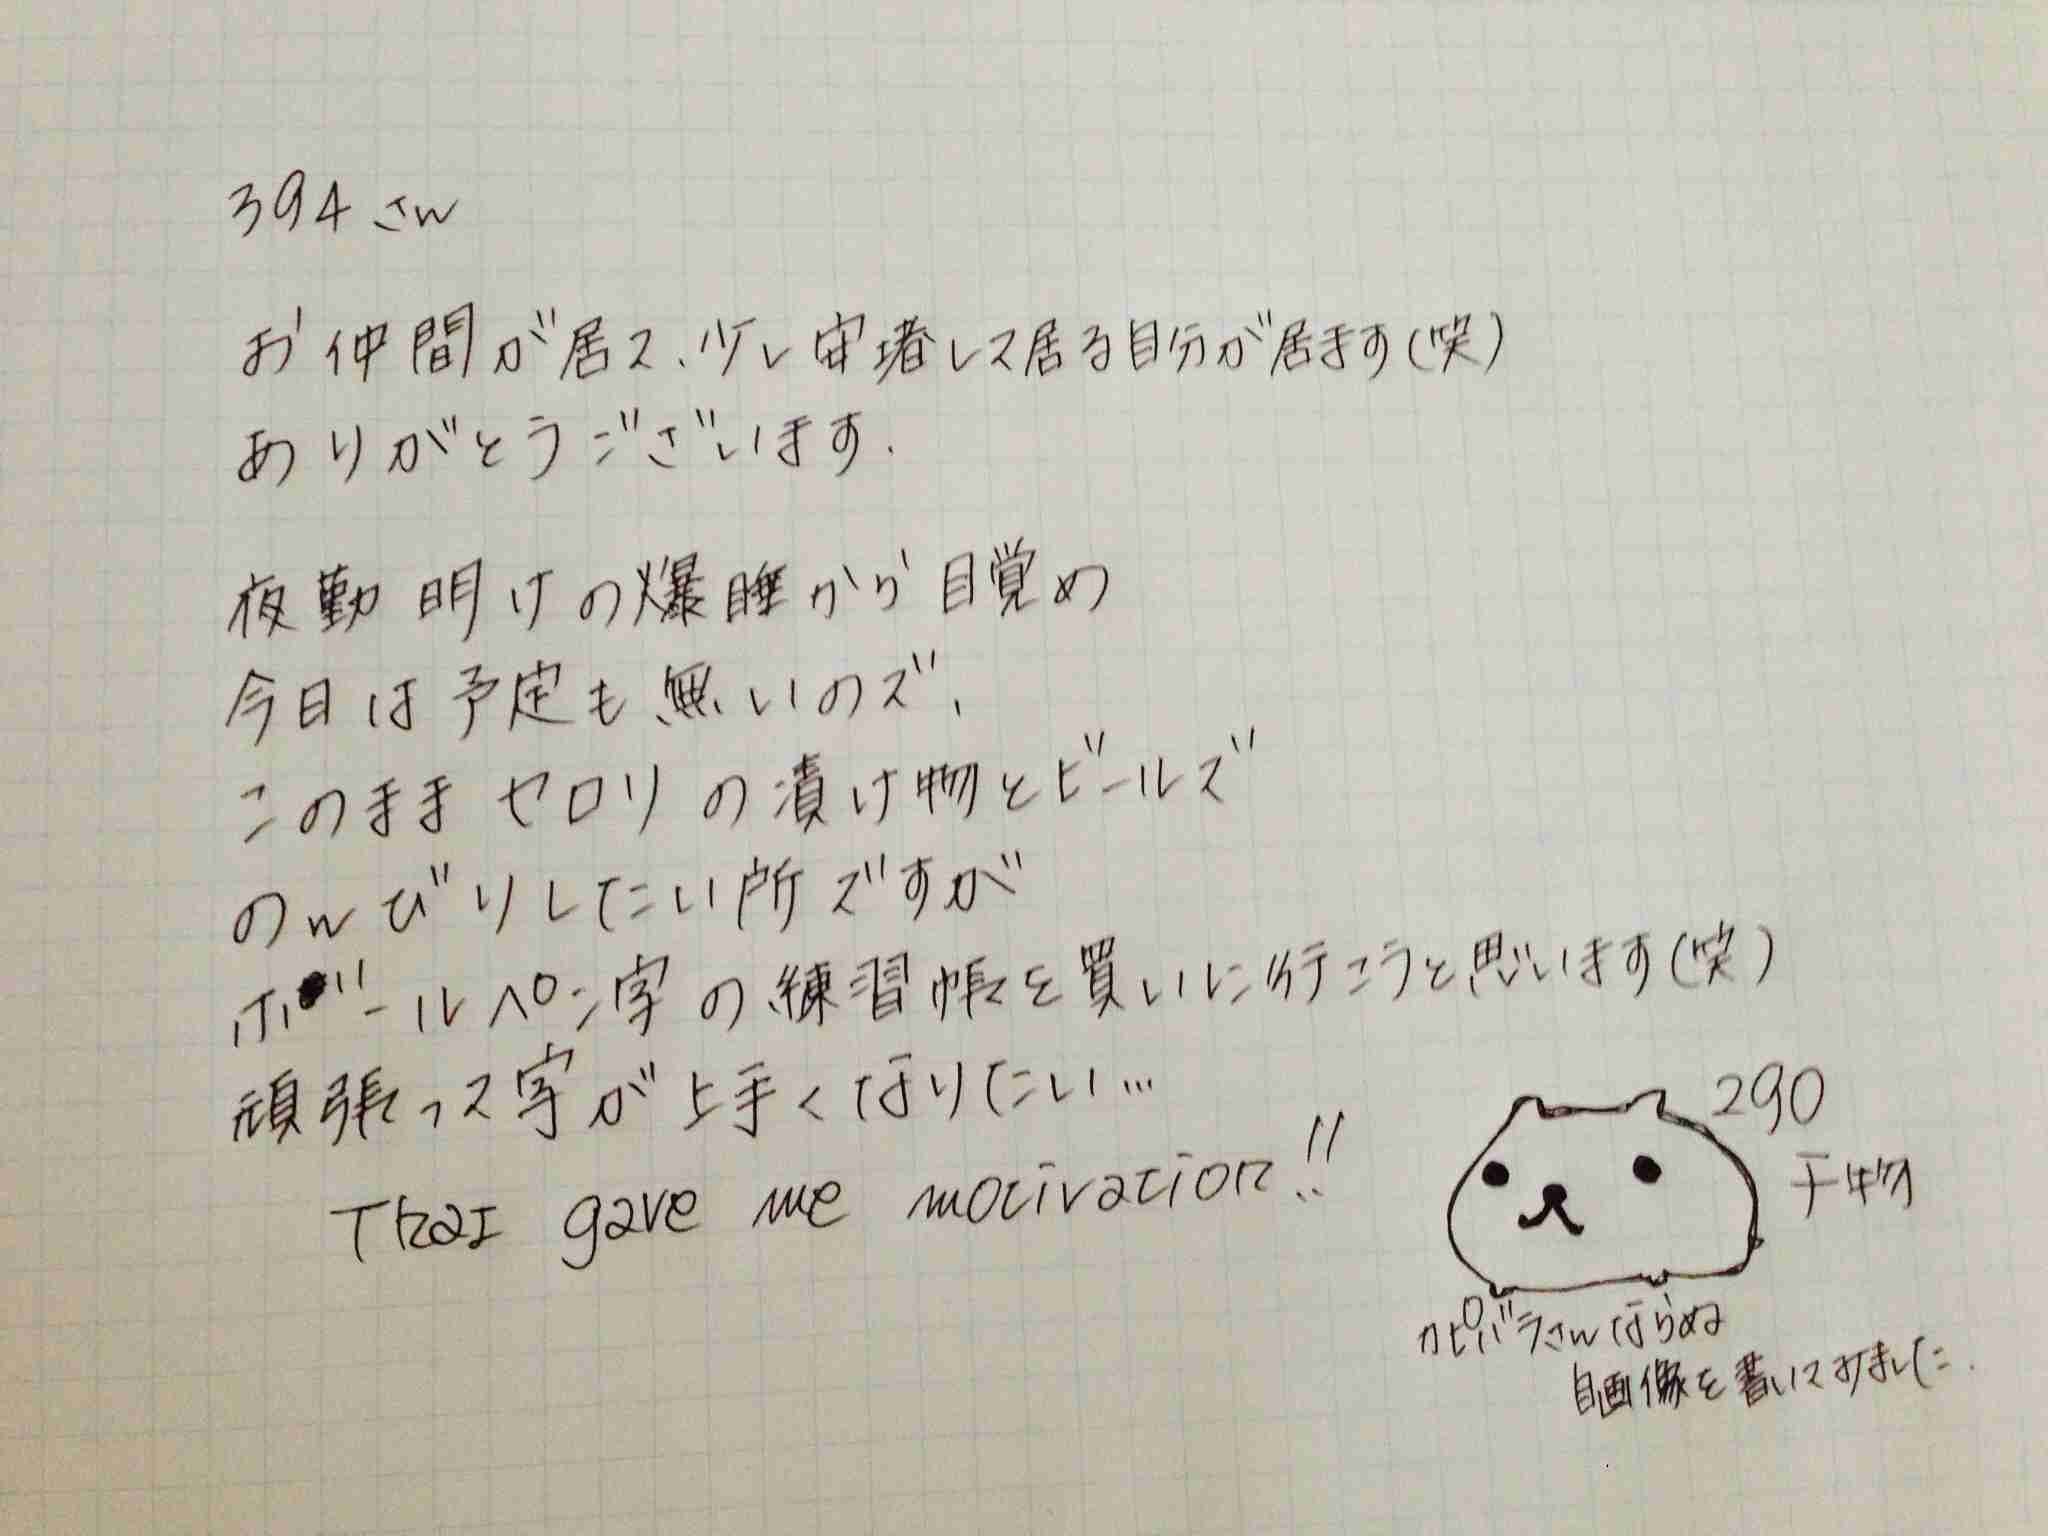 394さん
お仲間が居て、少し安堵して居る自分が居ます(笑)
ありがとうございます.
夜勤明けの爆睡から目覚め
今日は予定も無いので、
このままセロリの漬け物とビールで
のんびりしたい所ですが
ボールペン字の練習帳を買いに行こうと思います(笑)
頑張って字が上手くなりたい…
That gave me motivation!!
290
干物
カピバラさんならぬ
自画像を書いてみました.